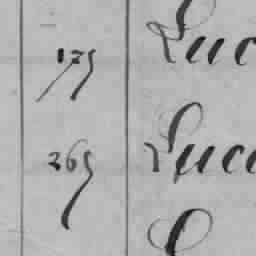 175 Luc
265 Luc